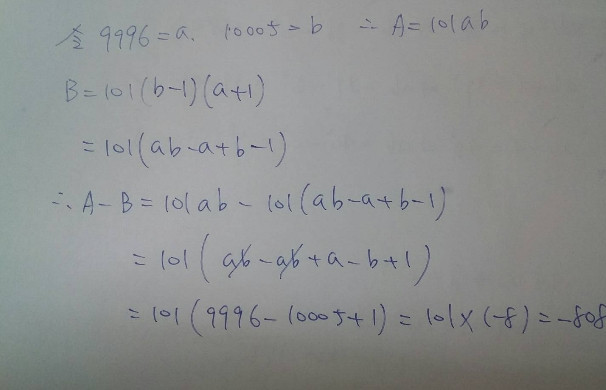 令 9996=a. 10005=b ∴A=101ab
B=101(b-1)(a+1)
=101(ab-a+b-1)
∴A-B=101ab-101(ab-a+b-1)
=101(ab-ab+a-b+1)
=101(9996-10005+1)=101×(-8)=-808